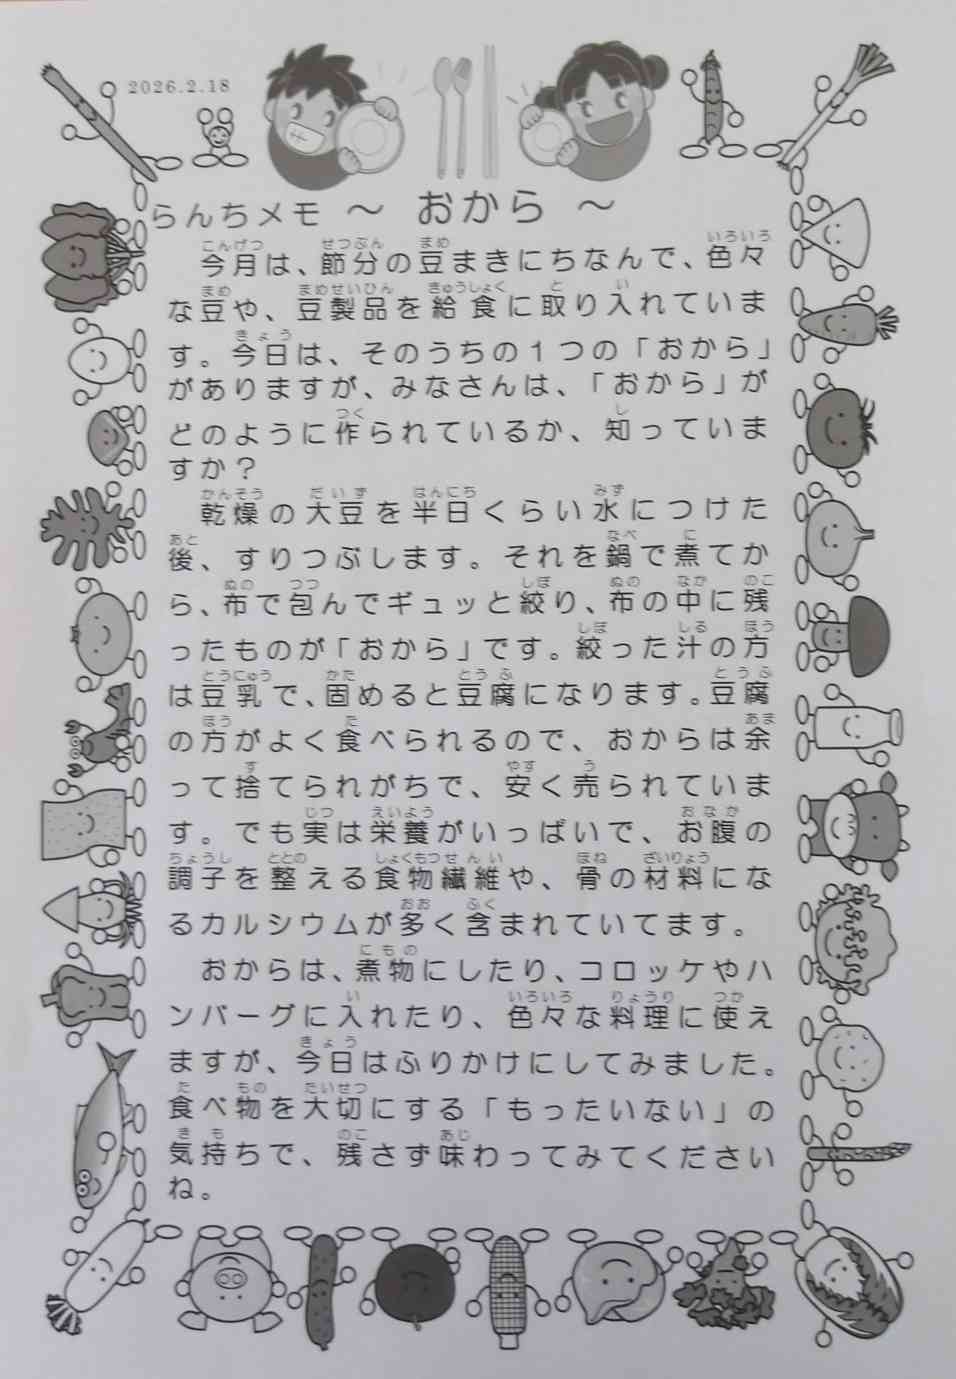 2026.2.18
らんちメモ ～ おから ～
今月は、節分の豆まきにちなんで、色々
な豆や、豆製品を給食に取り入れていま
す。今日は、そのうちの１つの「おから」
がありますが、みなさんは、「おから」が
どのように作られているか、知っていま
すか？
乾燥の大豆を半日くらい水につけた
後、すりつぶします。それを鍋で煮てか
ら、布で包んでギュッと絞り、布の中に残
ったものが「おから」です。絞った汁の方
は豆乳で、固めると豆腐になります。豆腐
の方がよく食べられるので、おからは余
って捨てられがちで、安く売られていま
す。でも実は栄養がいっぱいで、お腹の
調子を整える食物繊維や、骨の材料にな
るカルシウムが多く含まれていてます。
おからは、煮物にしたり、コロッケやハ
ンバーグに入れたり、色々な料理に使え
ますが、今日はふりかけにしてみました。
食べ物を大切にする「もったいない」の
気持ちで、残さず味わってみてください
ね。